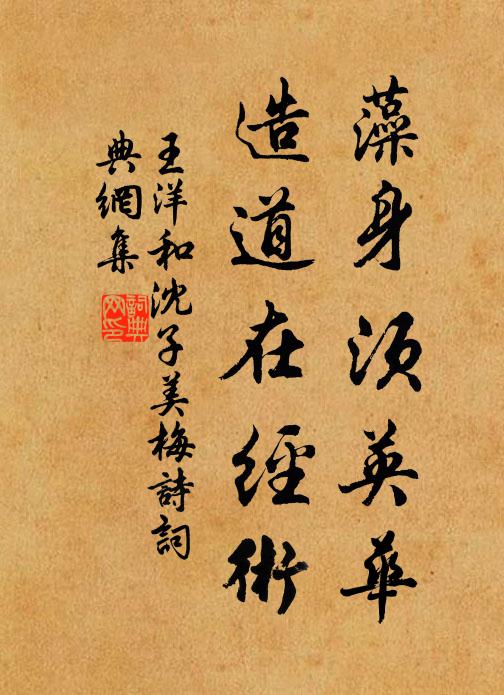 藻身須英華
造道在經術
王洋和沈子美梅詩詞
典網集
詞典網印